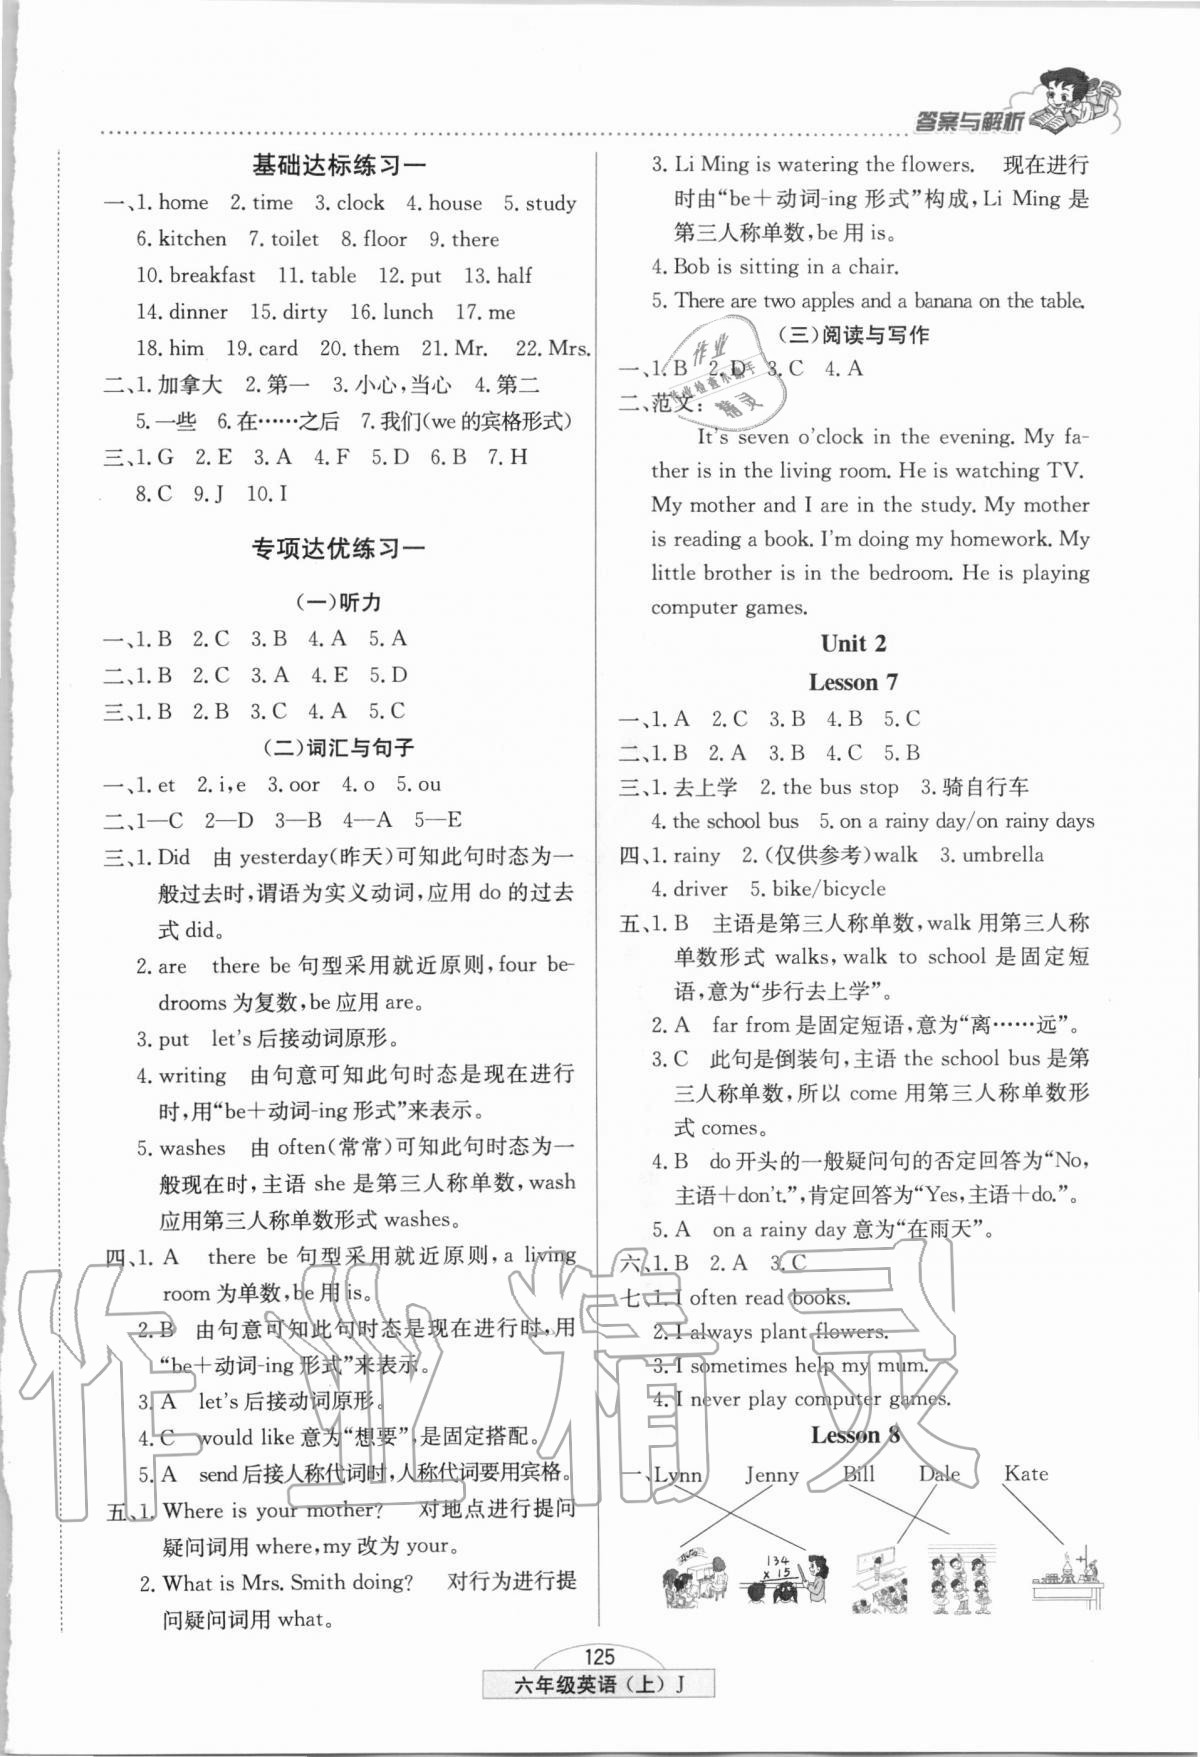 答案与解析
基础达标练习一
一、1. home 2. time 3. clock 4. house 5. study
6. kitchen 7. toilet 8. floor 9. there
10. breakfast 11. table 12. put 13. half
14. dinner 15. dirty 16. lunch 17. me
18. him 19. card 20. them 21. Mr. 22. Mrs.
二、1. 加拿大 2. 第一 3. 小心,当心 4. 第二
5. 一些 6. 在……之后 7. 我们(we 的宾格形式)
三、1. G 2. E 3. A 4. F 5. D 6. B 7. H
8. C 9. J 10. I
专项达优练习一
(一)听力
一、1. B 2. C 3. B 4. A 5. A
二、1. B 2. C 3. A 4. E 5. D
三、1. B 2. B 3. C 4. A 5. C
(二)词汇与句子
一、1. et 2. i,e 3. oor 4. o 5. ou
二、1—C 2—D 3—B 4—A 5—E
三、1. Did 由 yesterday(昨天)可知此句时态为一
般过去时,谓语为实义动词,应用 do 的过去
式 did。
2. are there be 句型采用就近原则,four be-
drooms 为复数,be 应用 are。
3. put let's 后接动词原形。
4. writing 由句意可知此句时态是现在进行
时,用“be+动词-ing 形式”来表示。
5. washes 由 often(常常)可知此句时态为一
般现在时,主语 she 是第三人称单数,wash
应用第三人称单数形式 washes。
四、1. A there be 句型采用就近原则,a living
room 为单数,be 用 is。
2. B 由句意可知此句时态是现在进行时,用
“be+动词-ing 形式”来表示。
3. A let's 后接动词原形。
4. C would like 意为“想要”,是固定搭配。
5. A send 后接人称代词时,人称代词要用宾格。
五、1. Where is your mother? 对地点进行提问
疑问词用 where,my 改为 your。
2. What is Mrs. Smith doing? 对行为进行提
问疑问词用 what。
3. Li Ming is watering the flowers. 现在进行
时由“be+动词-ing 形式”构成,Li Ming 是
第三人称单数,be 用 is。
4. Bob is sitting in a chair.
5. There are two apples and a banana on the table.
(三)阅读与写作
一、1. B 2. D 3. C 4. A
二、范文:
It's seven o'clock in the evening. My fa-
ther is in the living room. He is watching TV.
My mother and I are in the study. My mother
is reading a book. I'm doing my homework. My
little brother is in the bedroom. He is playing
computer games.
Unit 2
Lesson 7
一、1. A 2. C 3. B 4. B 5. C
二、1. B 2. A 3. B 4. C 5. B
三、1. 去上学 2. the bus stop 3. 骑自行车
4. the school bus 5. on a rainy day/on rainy days
四、1. rainy 2. (仅供参考)walk 3. umbrella
4. driver 5. bike/bicycle
五、1. B 主语是第三人称单数,walk 用第三人称
单数形式 walks,walk to school 是固定短
语,意为“步行去上学”。
2. A far from 是固定短语,意为“离……远”。
3. C 此句是倒装句,主语 the school bus 是第
三人称单数,所以 come 用第三人称单数形
式 comes。
4. B do 开头的一般疑问句的否定回答为“No,
主语+don't.”,肯定回答为“Yes,主语+do.”。
5. A on a rainy day 意为“在雨天”。
六、1. B 2. A 3. C
七、1. I often read books.
2. I always plant flowers.
3. I sometimes help my mum.
4. I never play computer games.
Lesson 8
一、Lynn Jenny Bill Dale Kate
134
×15
125
六年级英语(上) J
作业精灵